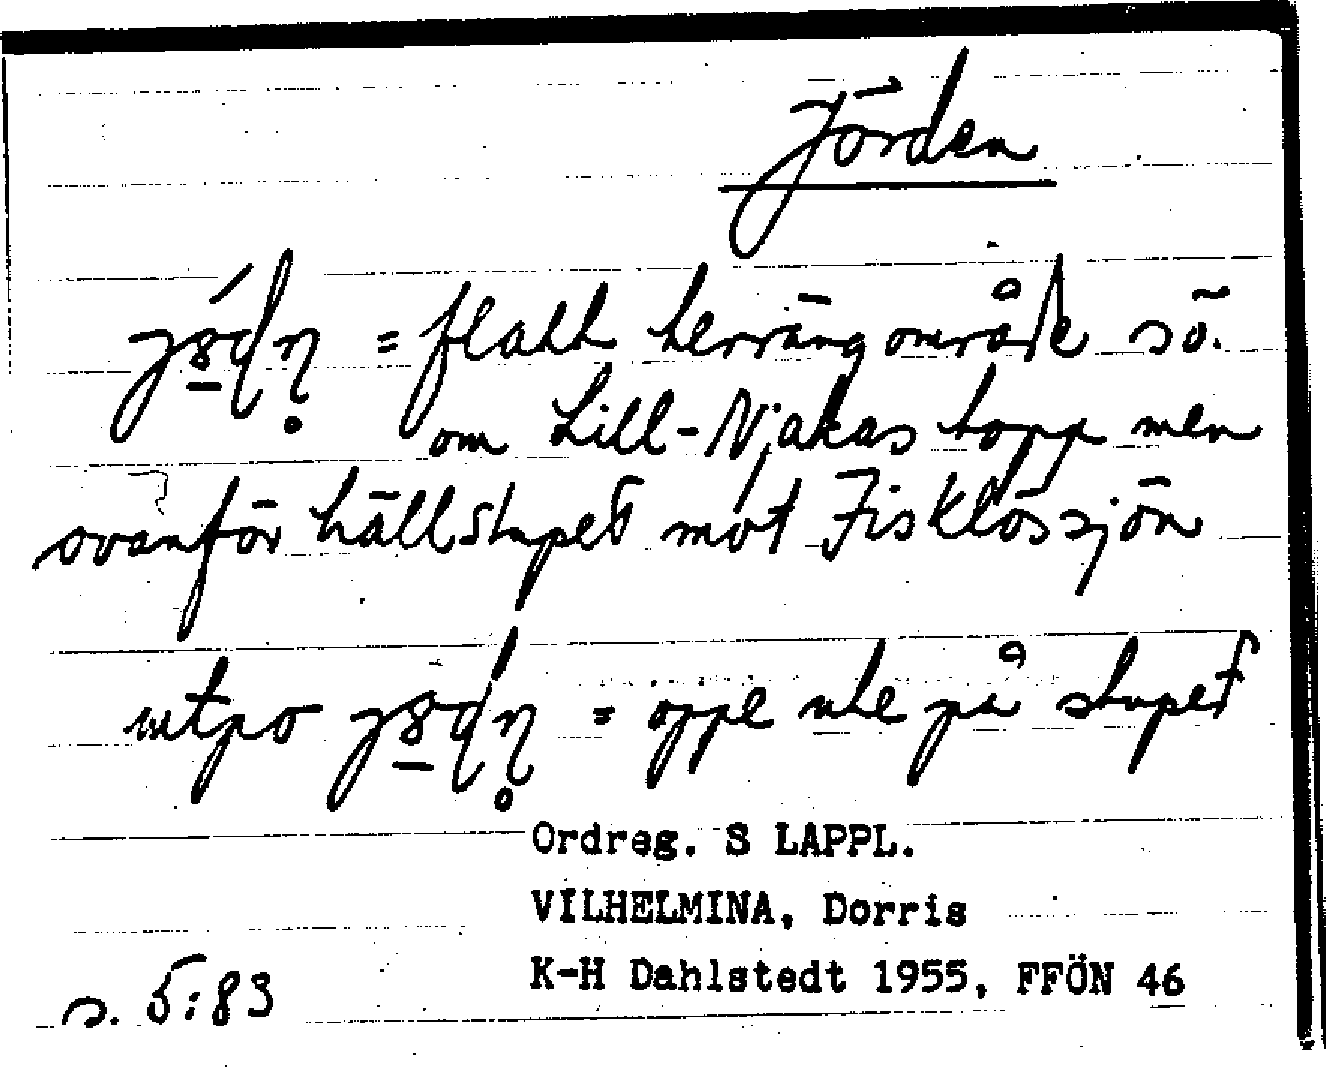 Jorden
= flatt terrängområde sö.
om Lill-Njakas topp men
ovanför hällstupet mot Fisklössjön
= oppe ute på stupet
Ordreg. S LAPPL.
VILHELMINA, Dorris
K-H Dahlstedt 1955, FFÖN 46
s. 5:83